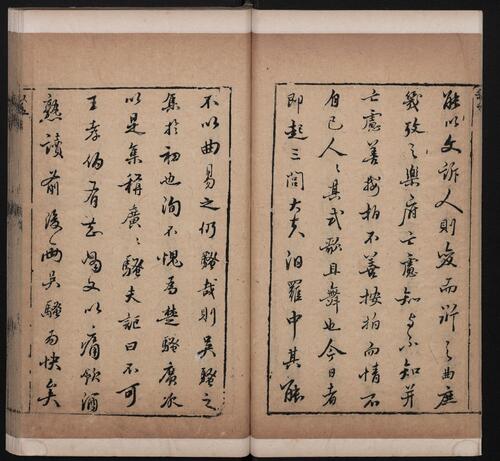 能以文訴人則變而訴之曲庶
幾攷之樂府亡慮知與不知并
亡慮善按拍不善按拍而情不
自已人〻其式歌且舞也今日者
即起三閭大夫汨羅中其能
不以曲易之仍騷哉則吳騷之
集於初也洵不愧為楚騷廣次
以是集稱廣〻騷夫記曰不可
王孝伯有以痛飲酒
熟讀前後兩吳騷為快矣